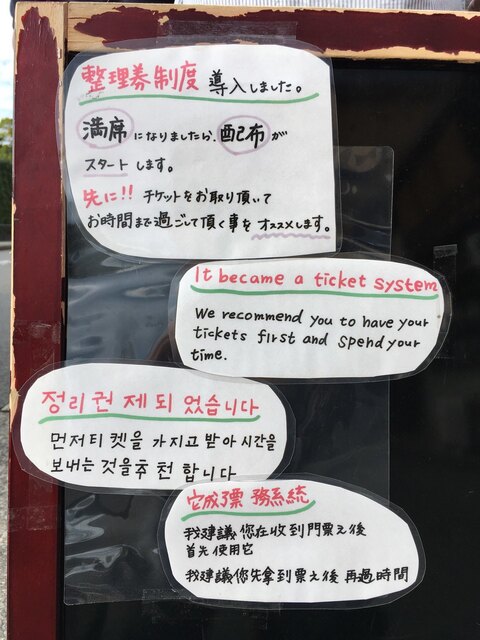 整理券制度 導入しました。
満席になりましたら、配布が
スタートします。
先に!! チケットをお取り頂いて
お時間まで過ごして頂く事をオススメします。
It became a ticket system
We recommend you to have your
tickets first and spend your
time.
정리권 제되었습니다
먼저티켓을 가지고 받아 시간을
보내는 것을추천합니다
它成了票務系統
我建議您在收到門票之後
首先使用它
我建議你先拿到票之後 再過時間